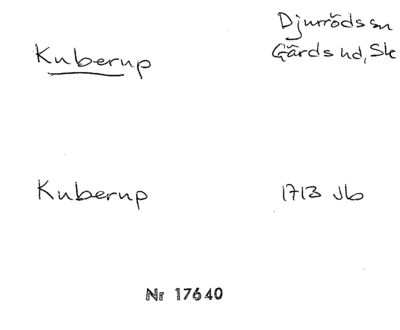 Kuberup
Djurröds sn
Gärds hd, Sk
Kuberup 1713 Jb
Nr 17640